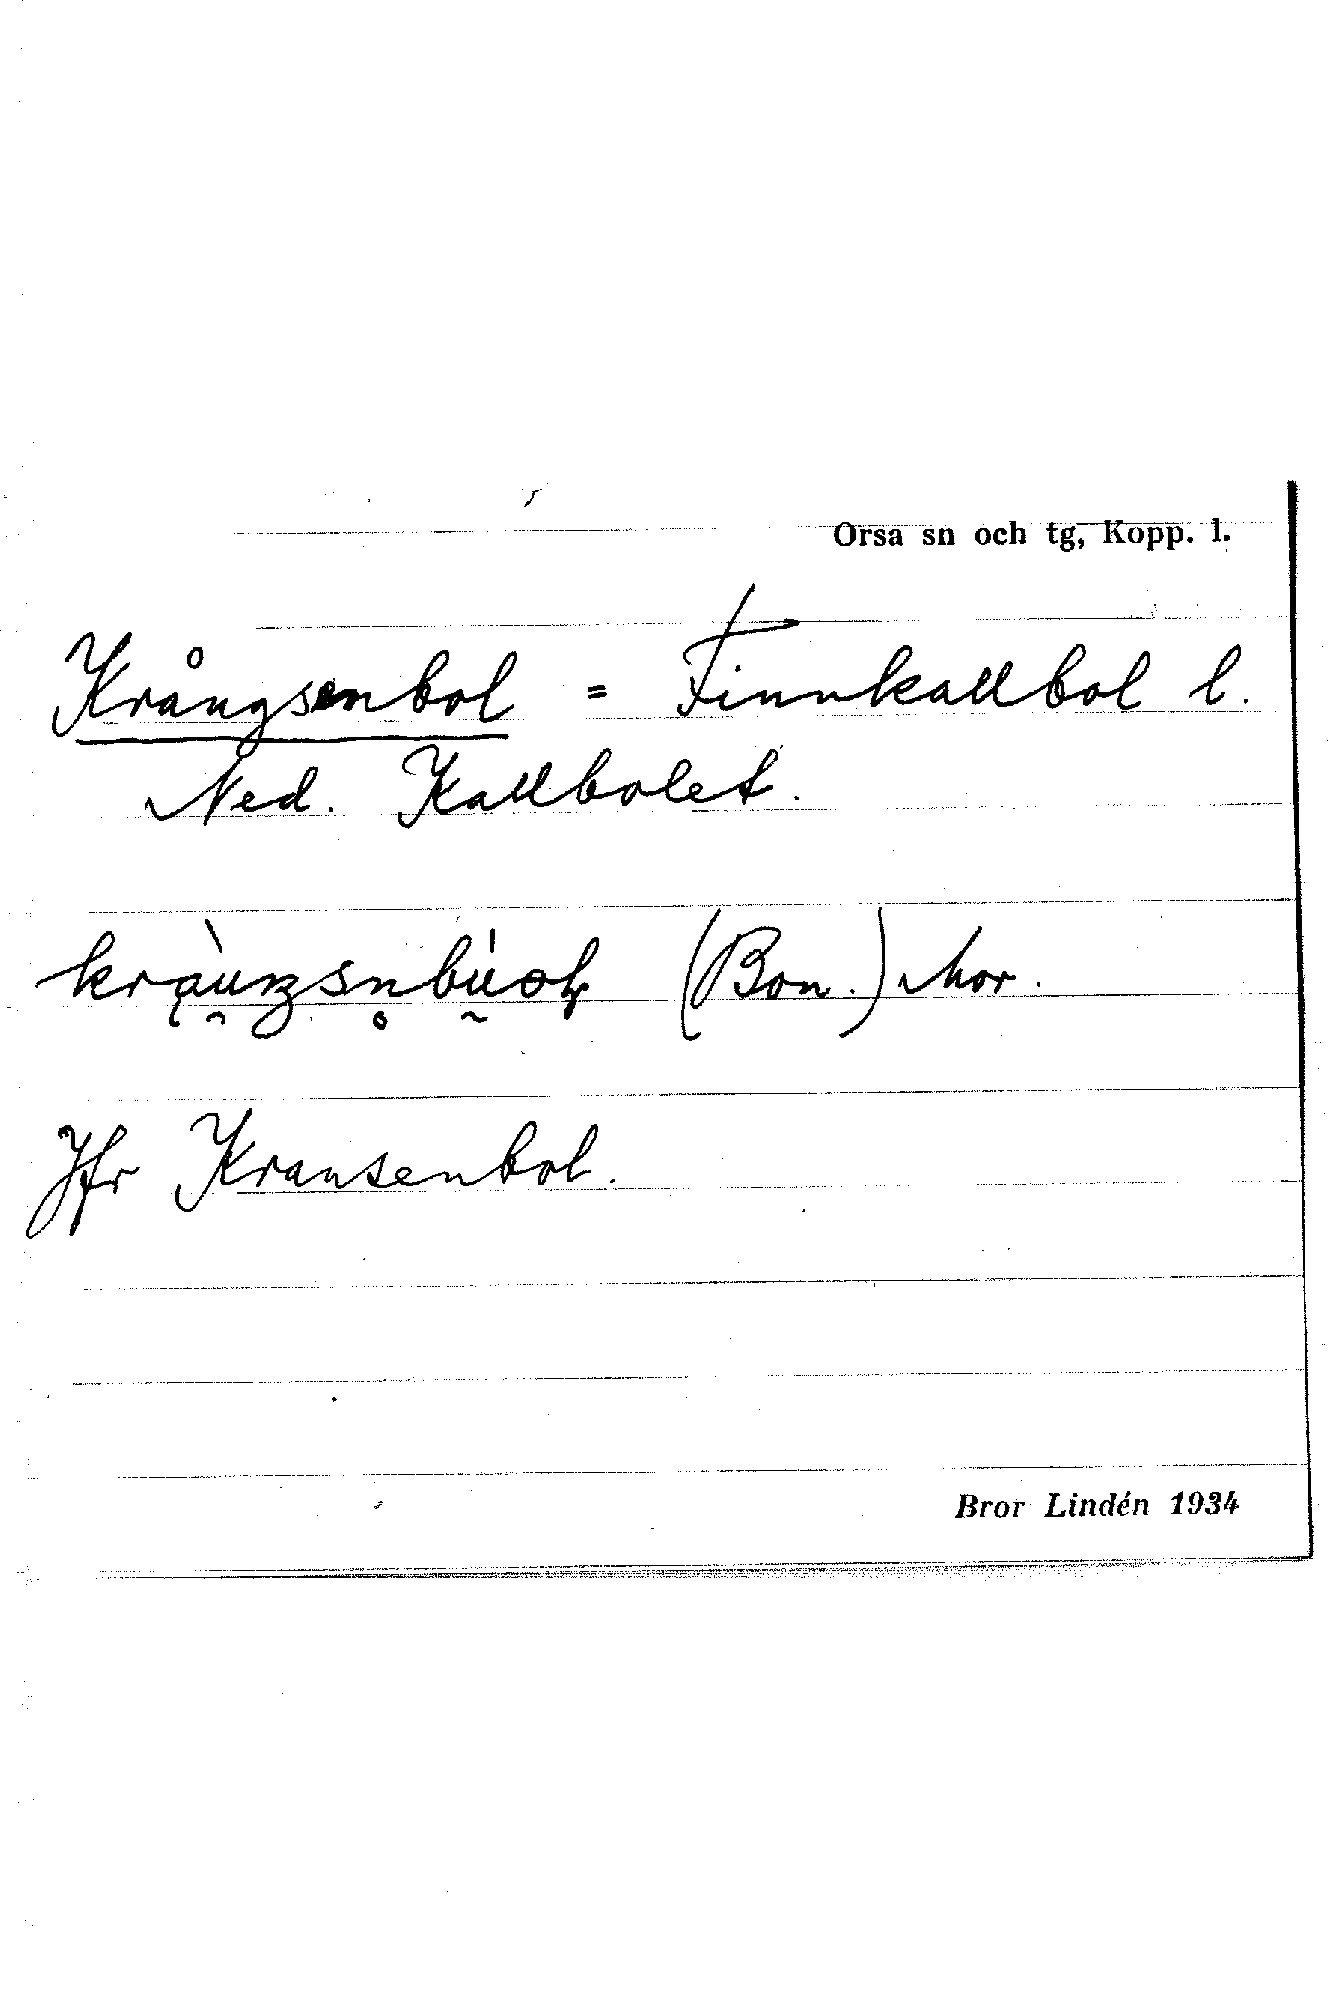 Orsa sn och tg, Kopp. l.
Krångsenbol = Finnkallbol l.
Ned. Kallbolet.
(Bon.) Mor.
Jfr Kransenbol.
Bror Lindén 1934